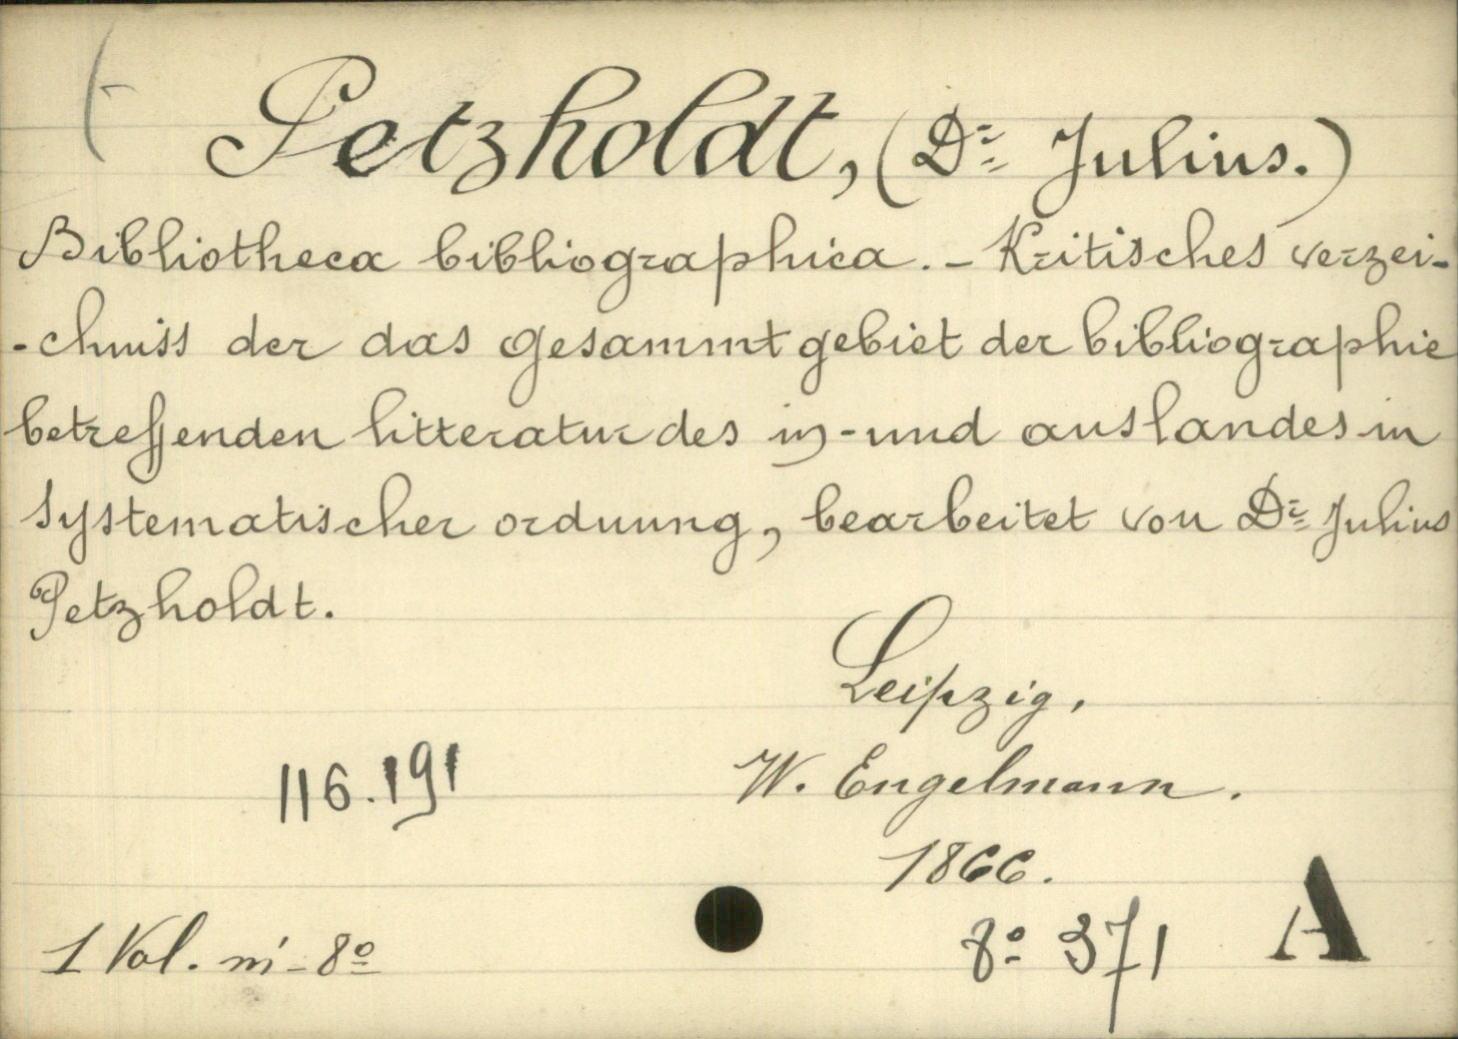 Petzholdt, (Dr Julius.)
Bibliotheca bibliographica. - Kritisches verzei-
-chniss der das gesammtgebiet der bibliographie
betreffenden litteratur des in-und auslandes in
systematischer ordnung, bearbeitet von Dr Julius
Petzholdt.
Leipzig,
116.191
W. Engelmann.
1866.
1 Vol. in-8º
8º 371
A